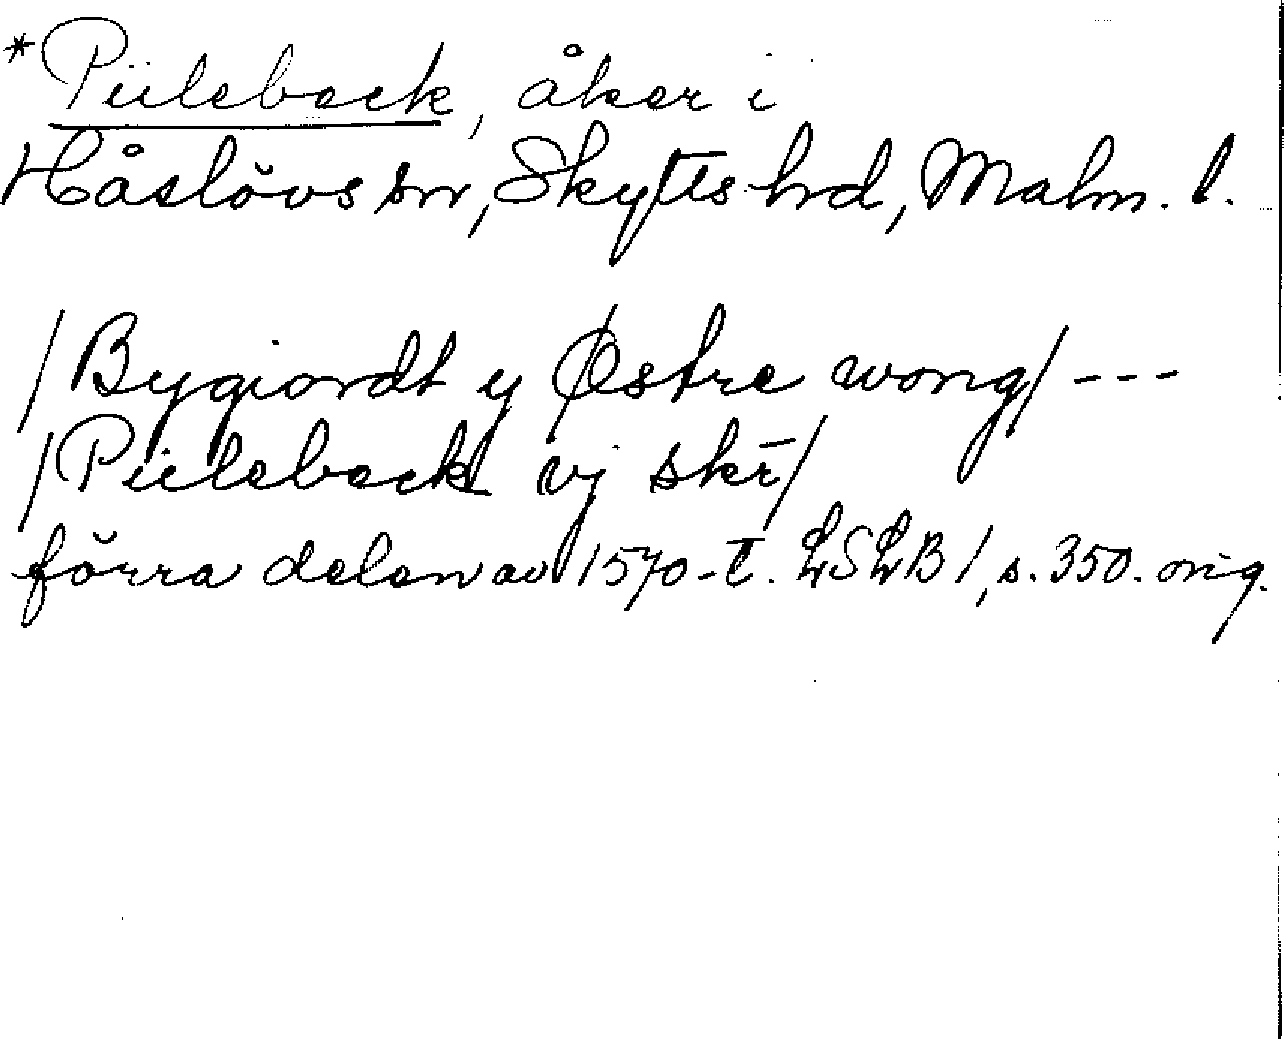 *Piilebeck, åker i
Håslövs sn, Skytts hd, Malm. l.
/Bygiordt y Østre wong/ ---
/Piilebeck vj skr̄/
förra delen av 1570-t. LSLB 1, s. 350. orig.